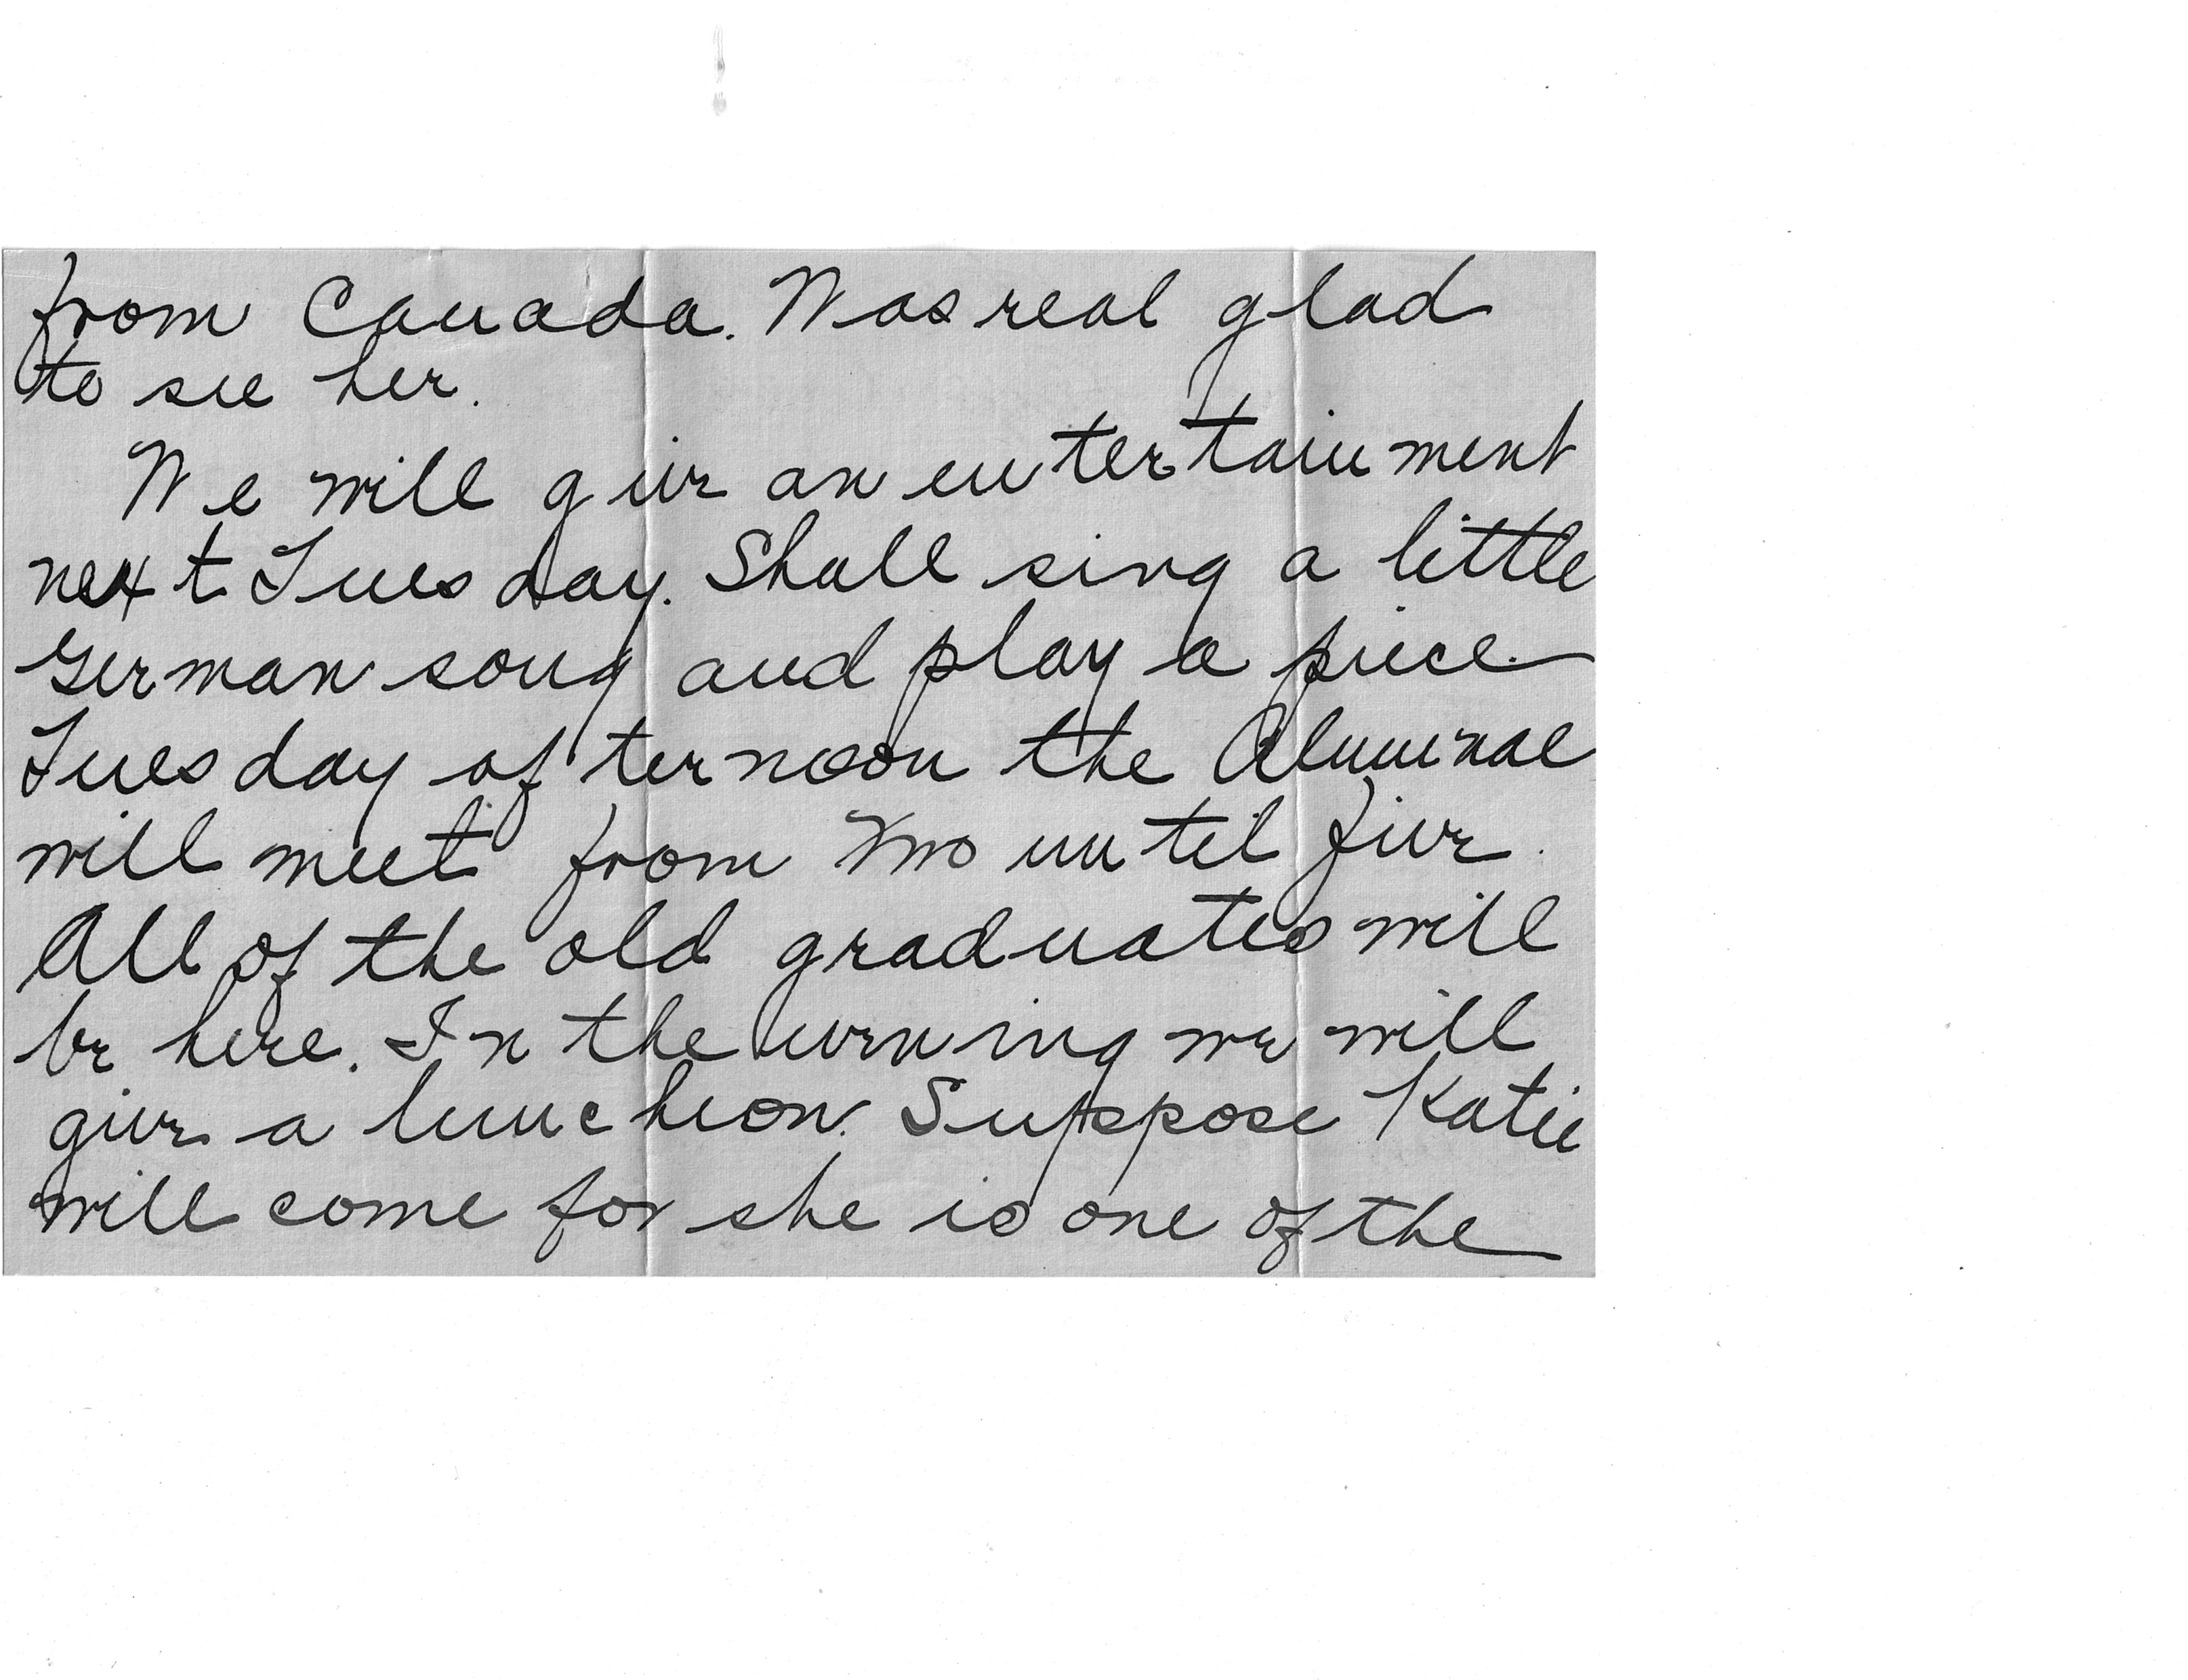 from Canada. Was real glad
to see her.
We will give an entertainment
next Tuesday. Shall sing a little
German song and play a piece.
Tuesday afternoon the Alumnae
will meet from two until five.
All of the old graduates will
be here. In the evening we will
give a luncheon. Suppose Katie
will come for she is one of the